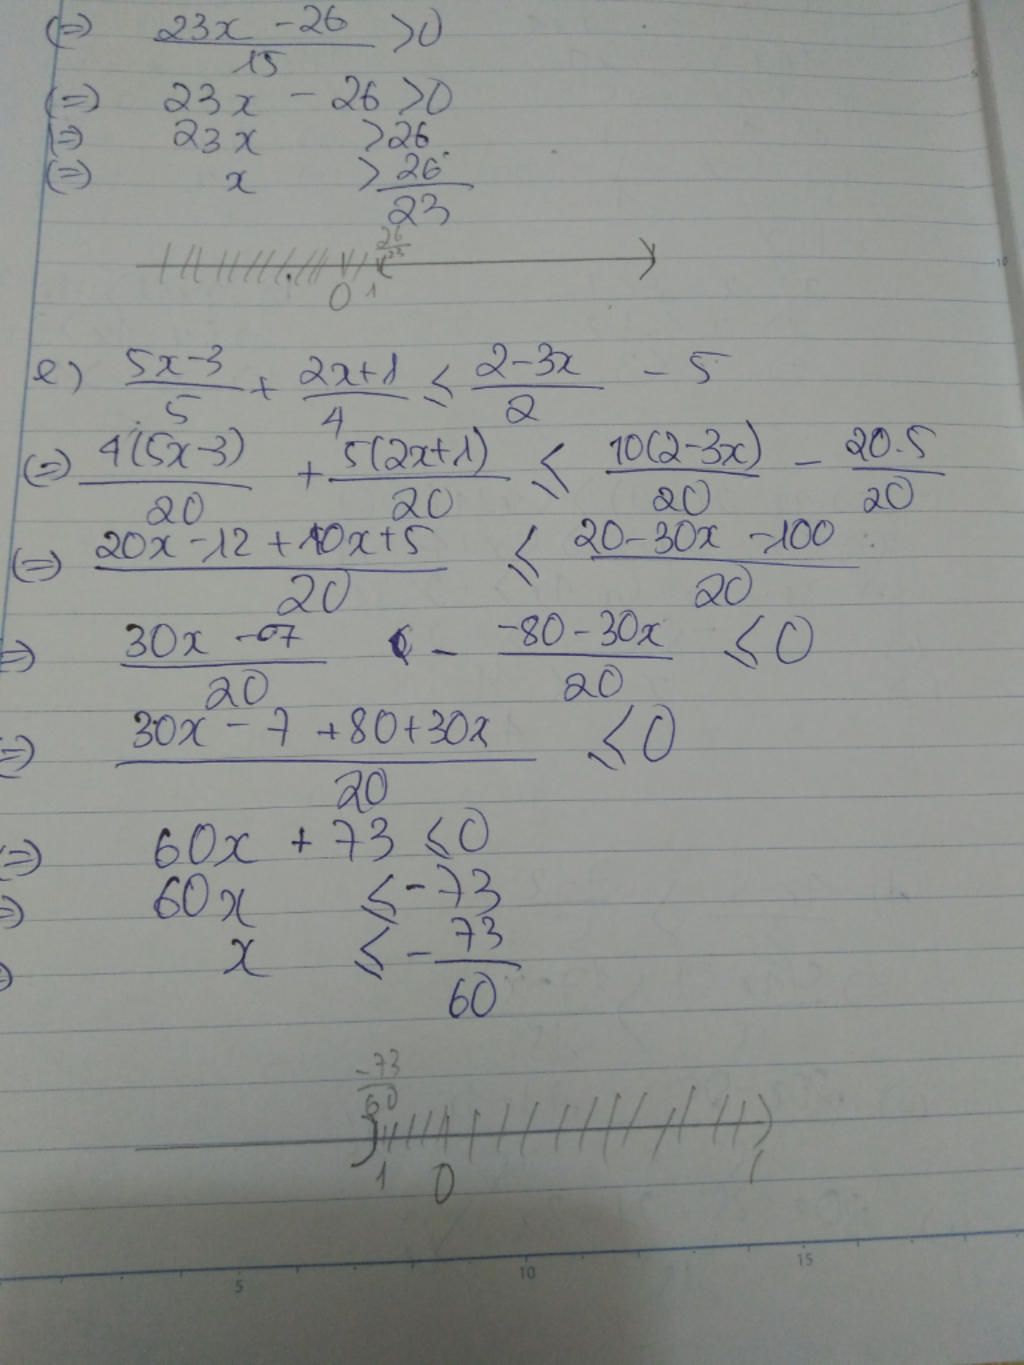 (=) 23x - 26 / 15 > 0
(=) 23x - 26 > 0
(=) 23x > 26
(=) x > 26 / 23
26 / 23
0 1
e) 5x-3 / 5 + 2x+1 / 4 ≤ 2-3x / 2 - 5
(=) 4(5x-3) / 20 + 5(2x+1) / 20 ≤ 10(2-3x) / 20 - 20.5 / 20
(=) 20x - 12 + 10x + 5 / 20 ≤ 20 - 30x - 100 / 20
(=) 30x - 7 / 20 - -80 - 30x / 20 ≤ 0
(=) 30x - 7 + 80 + 30x / 20 ≤ 0
(=) 60x + 73 ≤ 0
(=) 60x ≤ -73
(=) x ≤ - 73 / 60
-73 / 60
1 0
5 10 15